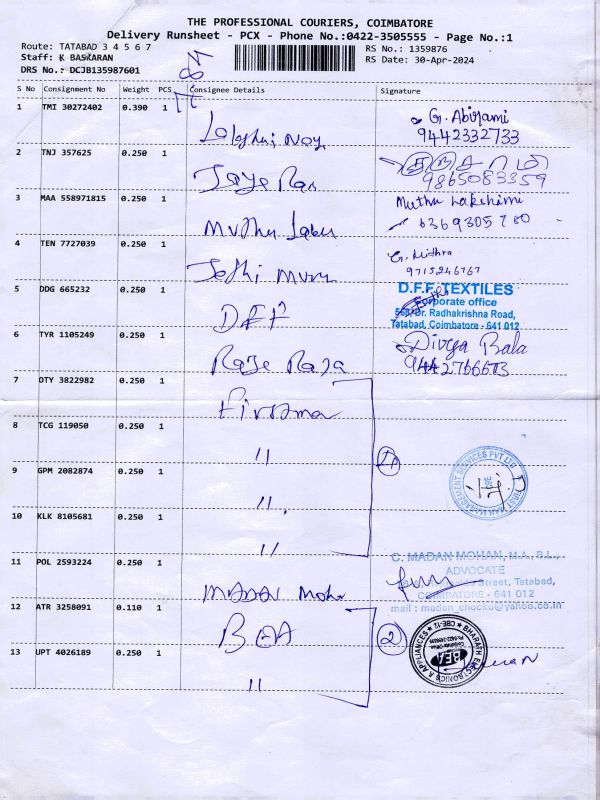 THE PROFESSIONAL COURIERS, COIMBATORE
Delivery Runsheet - PCX - Phone No.:0422-3505555 - Page No.:1
Route: TATABAD 3 4 5 6 7
RS No.: 1359876
Staff: K BASKARAN
RS Date: 30-Apr-2024
DRS No.: DCJB135987601
S No Consignment No Weight PCS Consignee Details Signature
1 TMI 30272402 0.390 1
G. Abirami
9442332733
2 TNJ 357625 0.250 1 Jaya Ram
9865083359
3 MAA 558971815 0.250 1 Muthu Laksh Muthu Lakshimi
6369305780
4 TEN 7727039 0.250 1 G. Mithra
9715246767
5 DDG 665232 0.250 1 DFF
D.F.F. TEXTILES
Corporate office
568, Dr. Radhakrishna Road,
Tatabad, Coimbatore - 641 012
6 TYR 1105249 0.250 1 Raje Raja Divya Bala
9442766673
7 OTY 3822982 0.250 1
8 TCG 119050 0.250 1 "
1)
9 GPM 2082874 0.250 1 "
FIRST MAIL MANAGEMENT SERVICES PVT LTD
CBE
10 KLK 8105681 0.250 1 "
11 POL 2593224 0.250 1 Madan Moha
C. MADAN MOHAN, M.A., B.L.,
ADVOCATE
Street, Tatabad,
COIMBATORE - 641 012
mail : madan_chocku@yahoo.co.in
12 ATR 3258091 0.110 1 BEA
2)
BHARATH ELECTRONICS & APPLIANCES
CBE-12
BEA
13 UPT 4026189 0.250 1 "